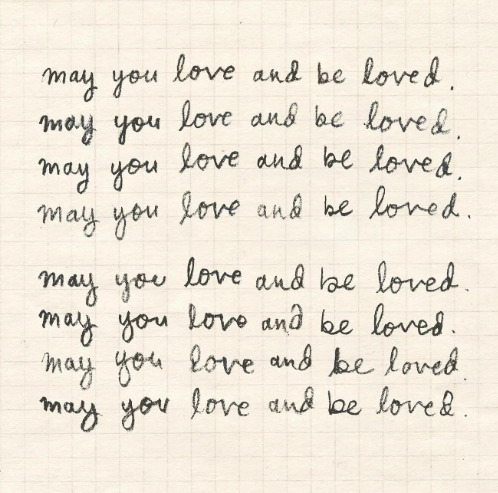 may you love and be loved.
may you love and be loved.
may you love and be loved.
may you love and be loved.
may you love and be loved.
may you love and be loved.
may you love and be loved.
may you love and be loved.